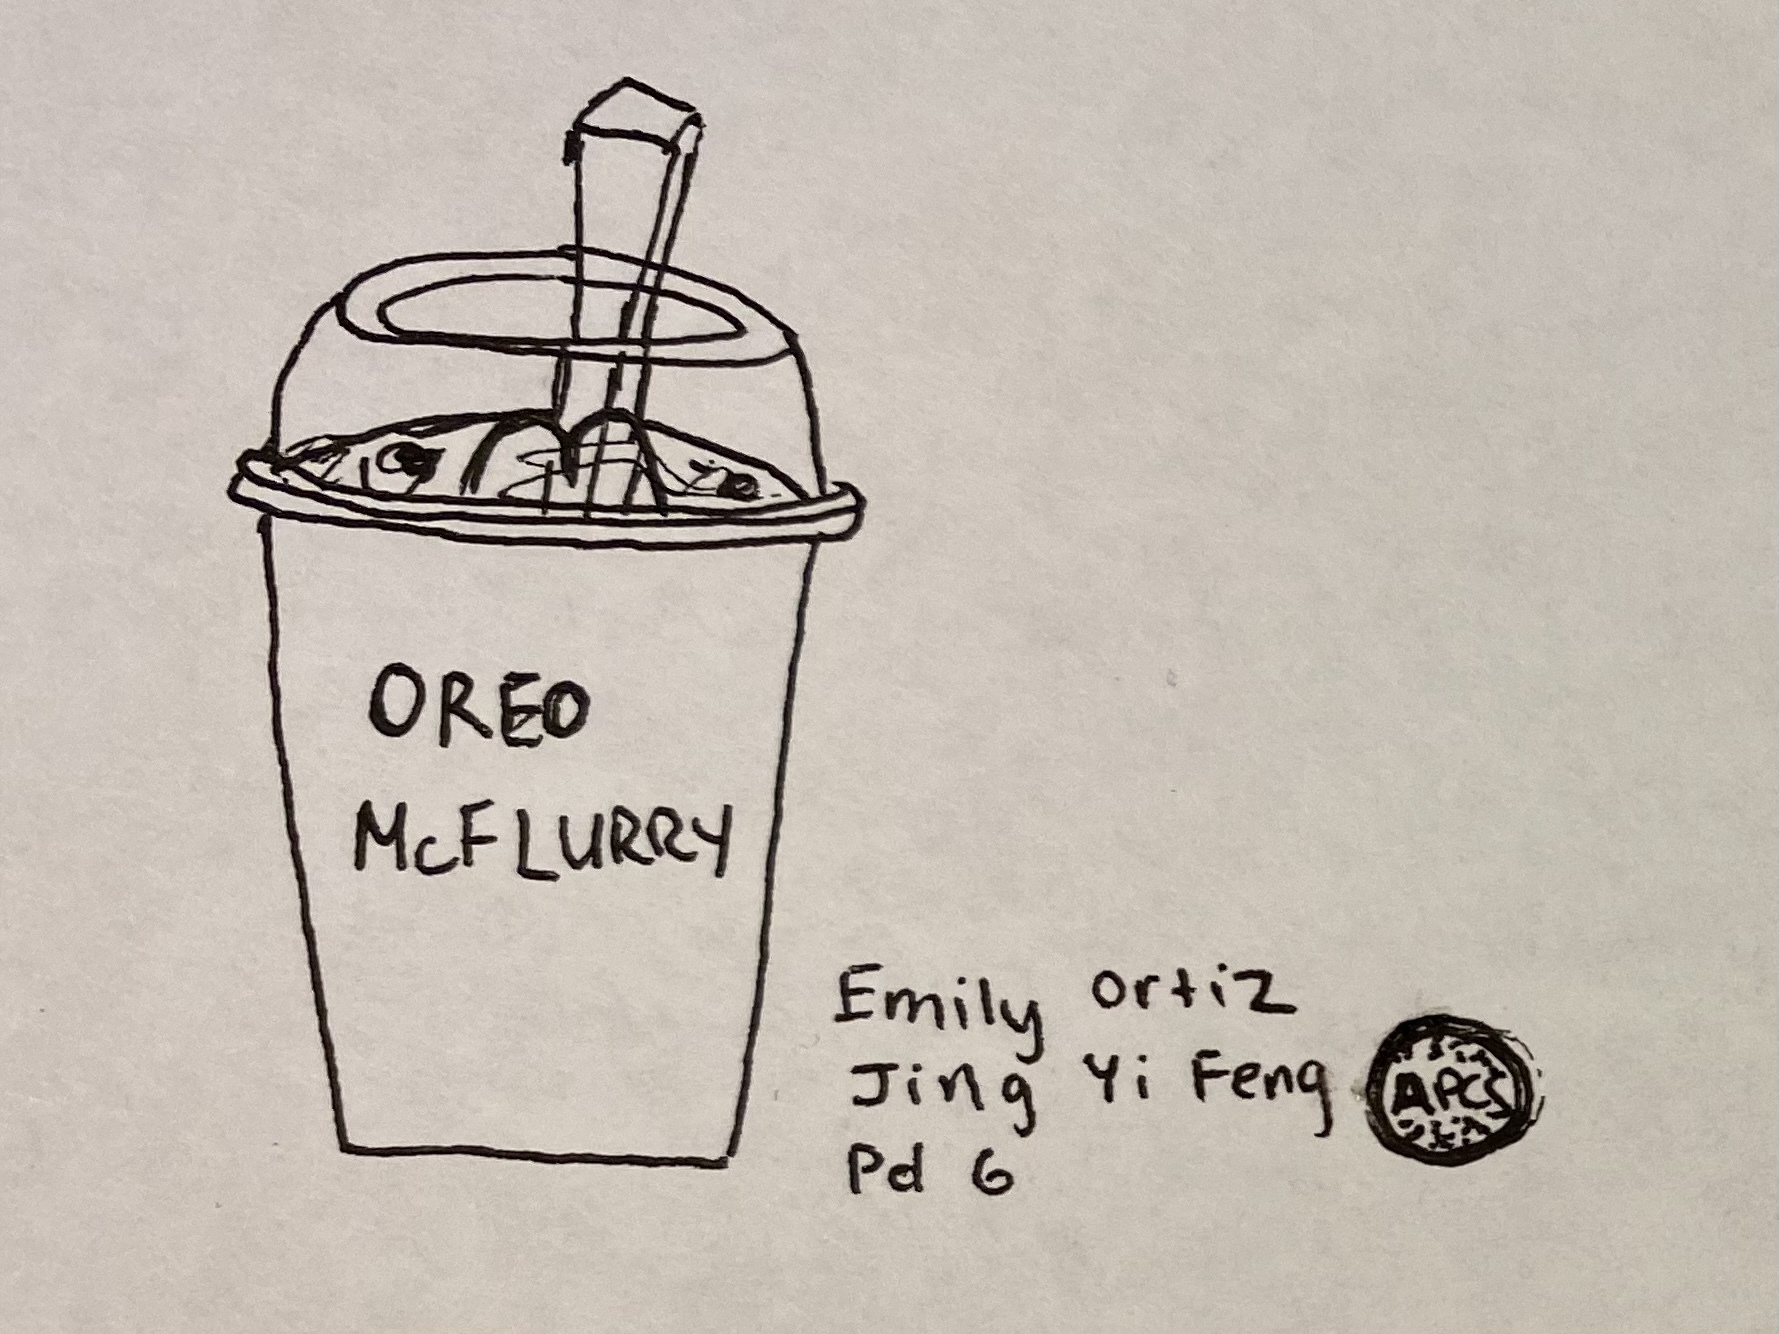 OREO
McFLURRY
Emily Ortiz
Jing Yi Feng
APCS
Pd 6